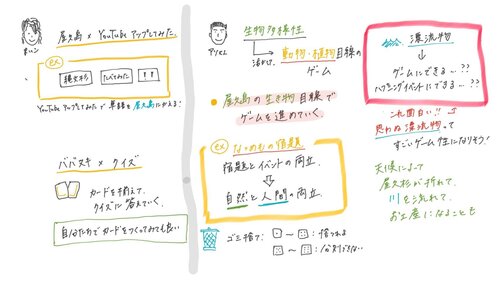 屋久島 × YouTubeアップしてみた。
ex
縄文杉
してみた
!!
YouTubeアップしてみたで 単語を屋久島にかえる!
ババヌキ × クイズ
カードを揃えて、
クイズに答えていく。
自分たちでカードをつくってみても良い
生物多様性
活かす。
動物・植物目線の
ゲーム
屋久島の生き物目線で
ゲームを進めていく。
ex
なつやすみの宿題
宿題とイベントの両立
自然と人間の両立。
ゴミ捨て:
〜
:捨てれる
〜
漂流物
ゲームにできる…??
ハプニングイベントにできる…??
これ面白い!!
思わぬ漂流物って
すごいゲーム性になりそう!
天候によって
屋久杉が折れて、
川を流れて、
お土産になることも